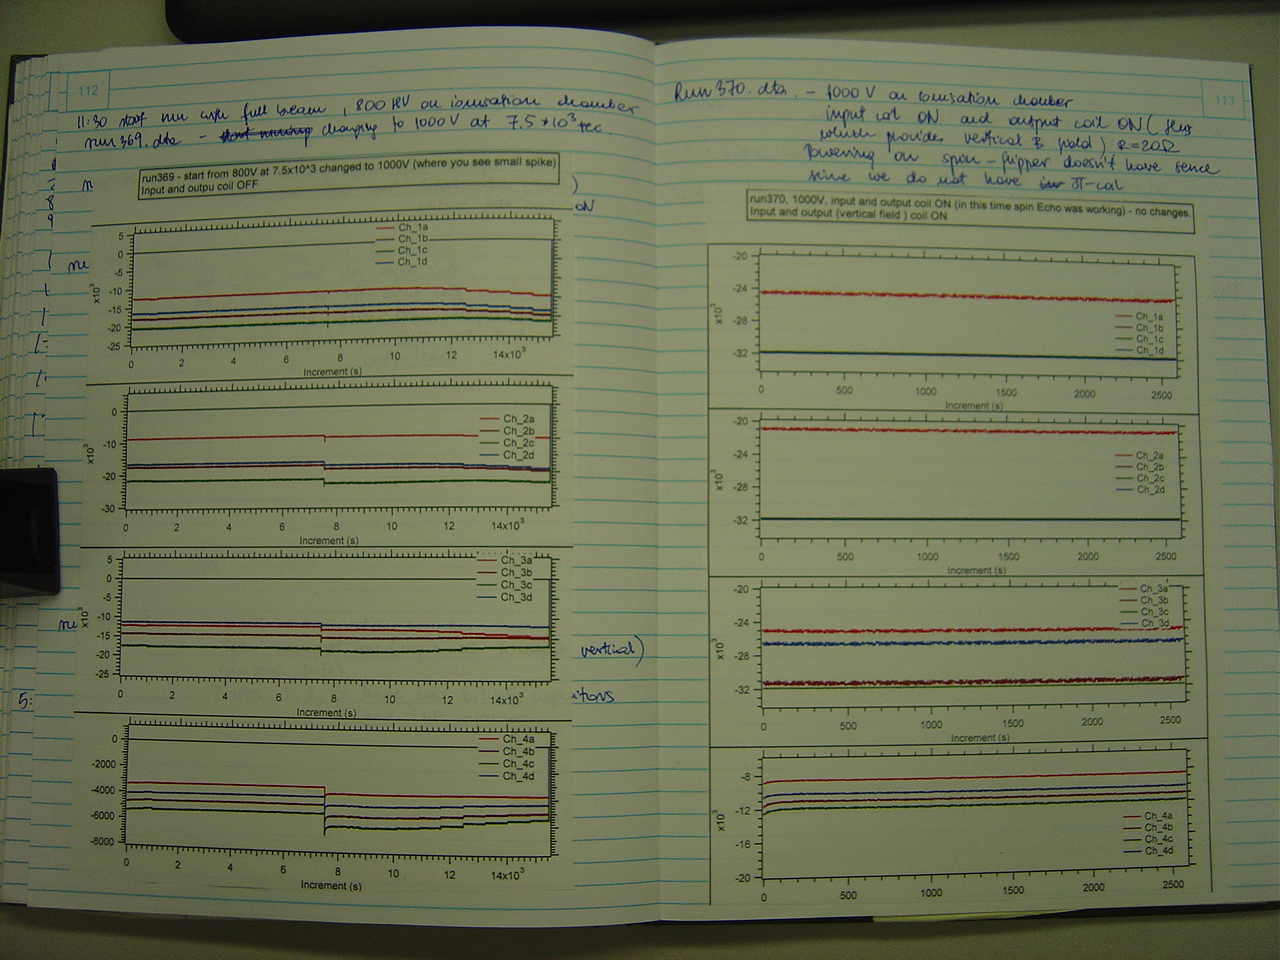 112
11:30 start run with full beam, 800 V on ionisation chamber
run369.dta - start running changing to 1000V at 7.5*10³ sec.
run369 - start from 800V at 7.5x10^3 changed to 1000V (where you see small spike)
Input and outpu coil OFF
)
ON
Ch_1a
Ch_1b
Ch_1c
Ch_1d
5
0
-5
-10
-15
-20
-25
x10³
0 2 4 6 8 10 12 14x10³
Increment (s)
Ch_2a
Ch_2b
Ch_2c
Ch_2d
0
-10
-20
-30
x10³
0 2 4 6 8 10 12 14x10³
Increment (s)
Ch_3a
Ch_3b
Ch_3c
Ch_3d
5
0
-5
-10
-15
-20
-25
x10³
0 2 4 6 8 10 12 14x10³
Increment (s)
vertical)
5:
Ch_4a
Ch_4b
Ch_4c
Ch_4d
0
-2000
-4000
-6000
-8000
0 2 4 6 8 10 12 14x10³
Increment (s)
113
Run370.dta. - 1000 V on ionisation chamber
input coil ON and output coil ON (this
which provides vertical B field) R=20Ω
Powering on spin-flipper doesn't have sence
since we do not have π-coil
run370, 1000V, input and output coil ON (in this time spin Echo was working) - no changes.
Input and output (vertical field ) coil ON
-20
-24
-28
-32
x10³
Ch_1a
Ch_1b
Ch_1c
Ch_1d
0 500 1000 1500 2000 2500
Increment (s)
-20
-24
-28
-32
x10³
Ch_2a
Ch_2b
Ch_2c
Ch_2d
0 500 1000 1500 2000 2500
Increment (s)
-20
-24
-28
-32
x10³
Ch_3a
Ch_3b
Ch_3c
Ch_3d
0 500 1000 1500 2000 2500
Increment (s)
-8
-12
-16
-20
x10³
Ch_4a
Ch_4b
Ch_4c
Ch_4d
0 500 1000 1500 2000 2500